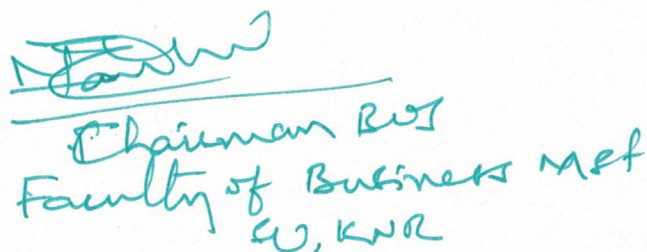 Chairman BOS
Faculty of Business Mgt
SU, KNR